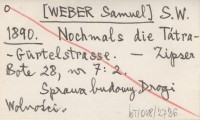 o [WEBER Samuel] S.W.
1890. Nochmals die Tátra-
-Gürtelstrasse. — Zipser
Bote 28, nr 7: 2.
Sprawa budowy Drogi
Wolności.